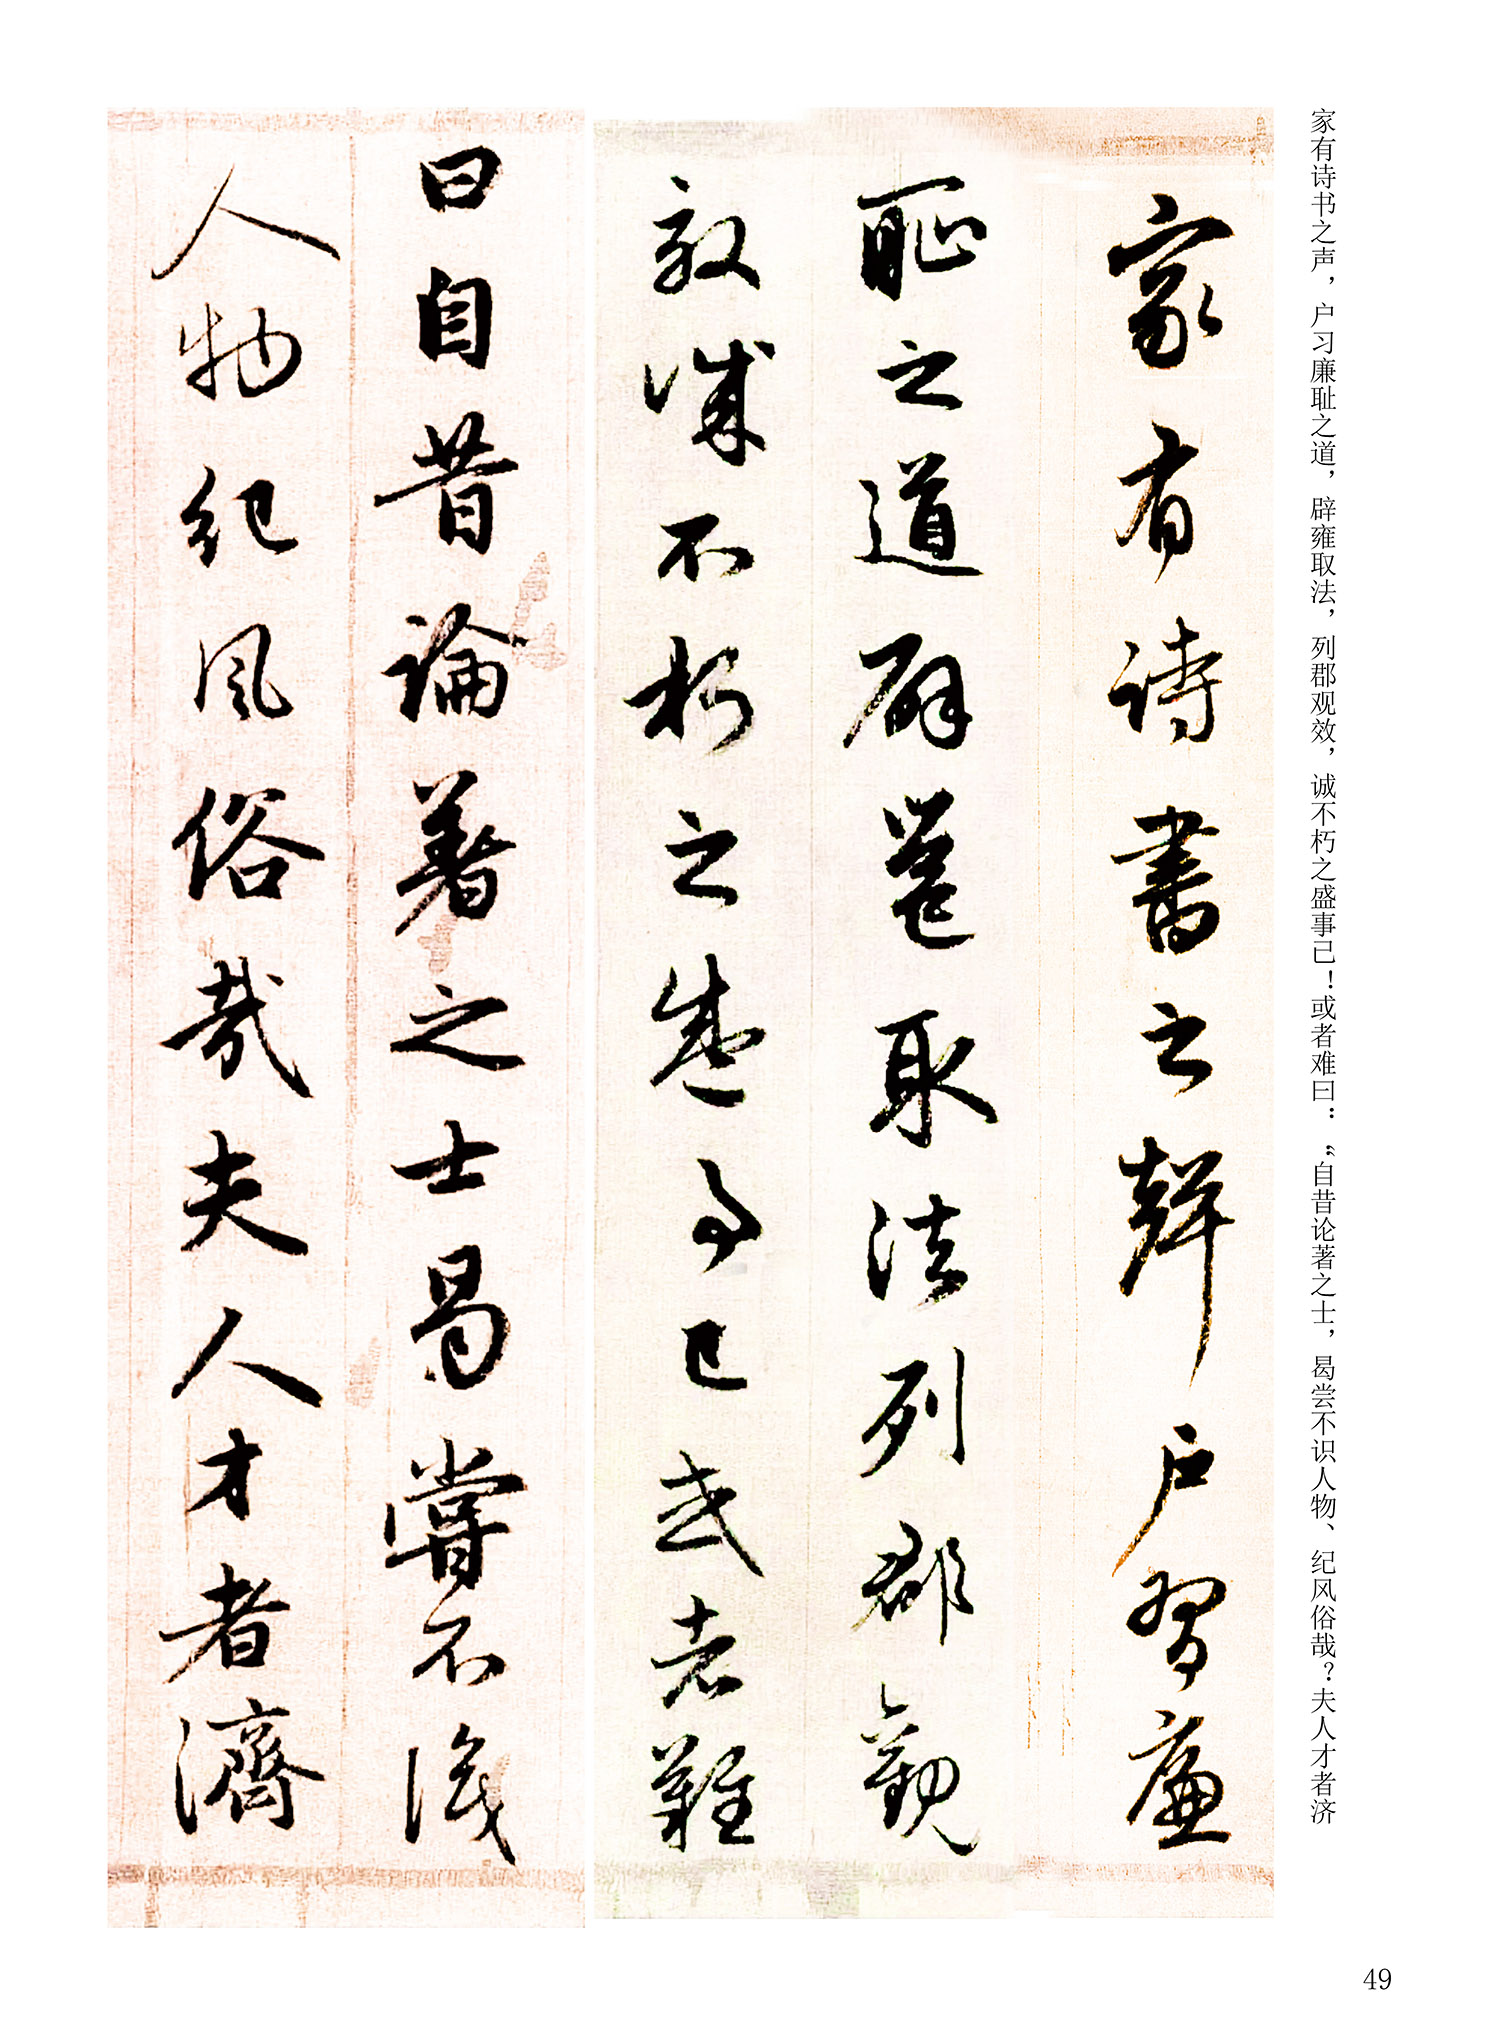 家有诗书之声，户习廉耻之道，辟雍取法，列郡观效，诚不朽之盛事已！或者难曰：“自昔论著之士，曷尝不识人物、纪风俗哉？夫人才者济
家有詩書之聲户習廉
恥之道辟雍取法列郡觀
效誠不朽之盛事已或者難
曰自昔論著之士曷嘗不識
人物紀風俗哉夫人才者濟
49